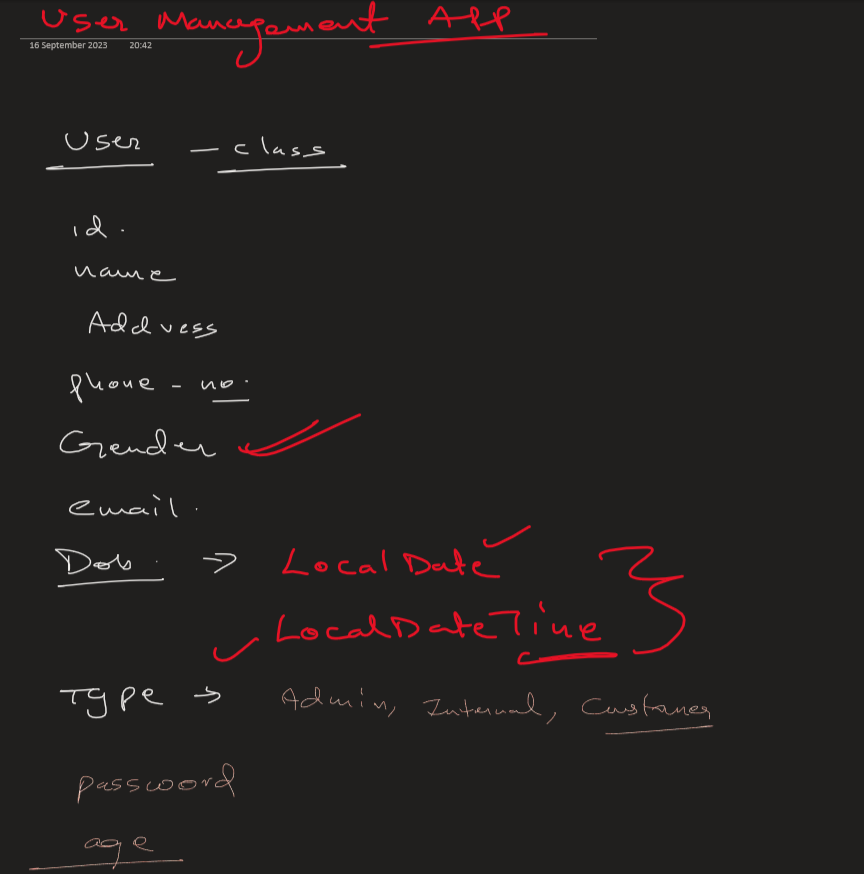 User Management APP
16 September 2023 20:42
User - class
id.
name
Address
phone - no.
Gender
email.
Dob. → LocalDate
LocalDateTime
Type → Admin, Internal, Customer
password
age